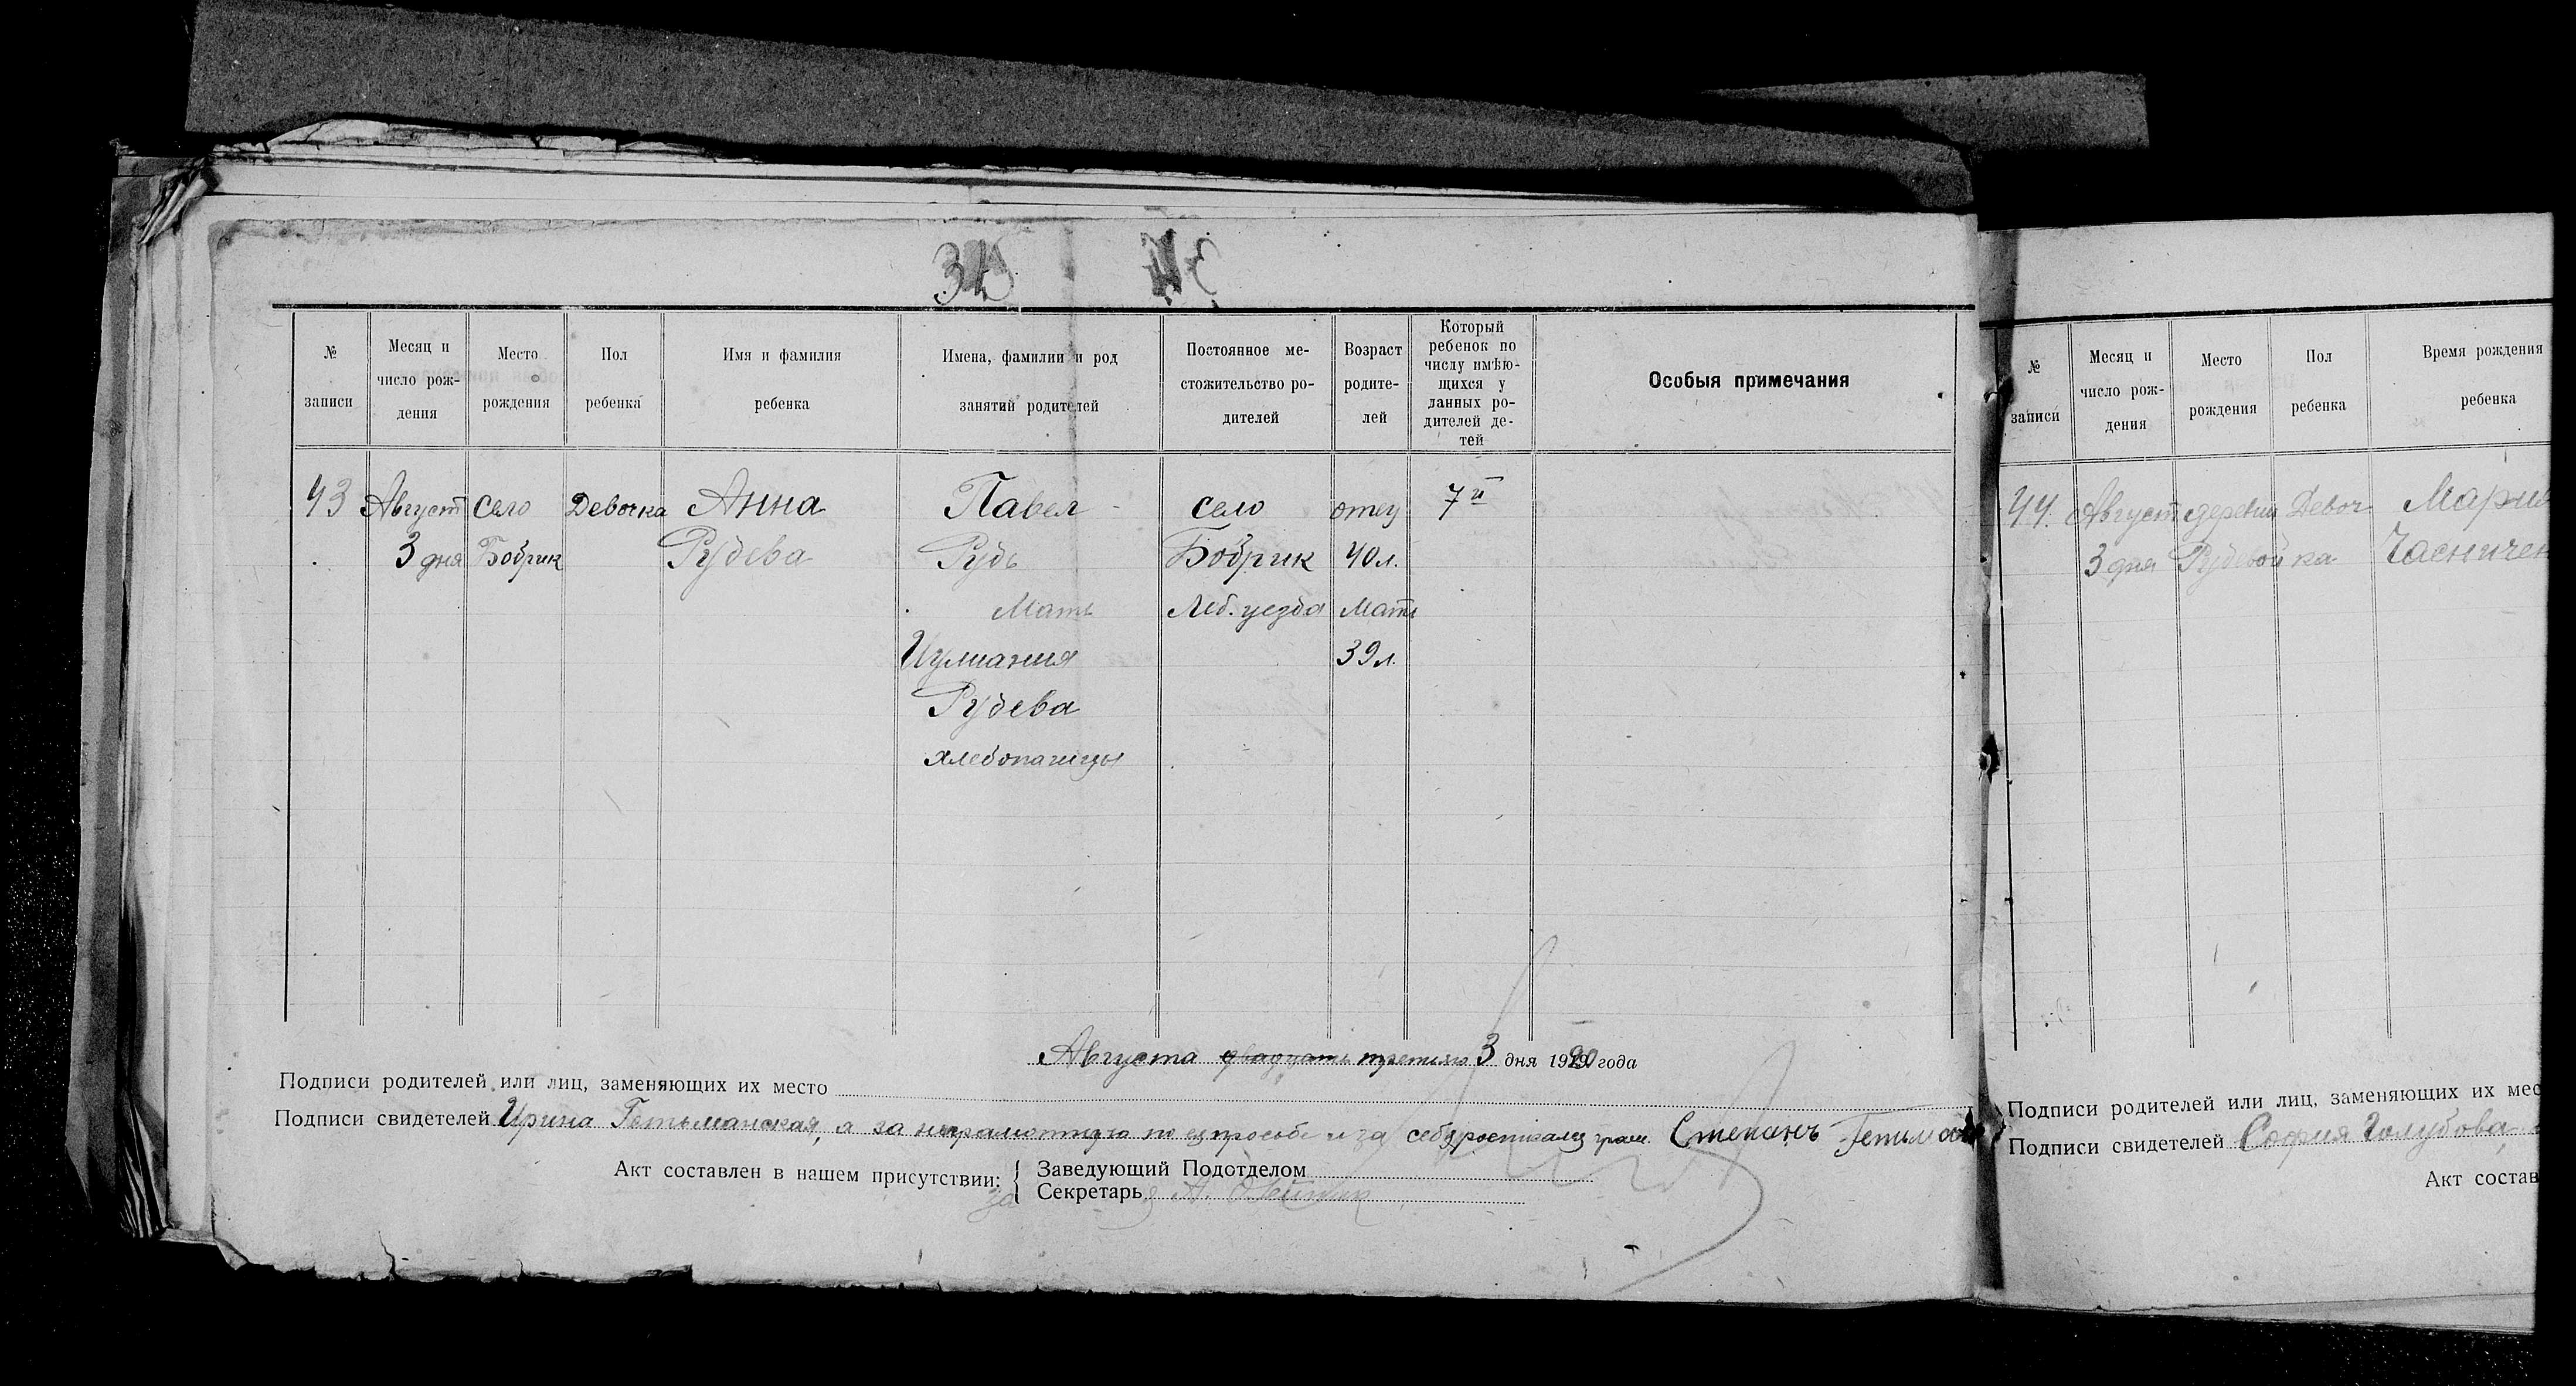 № записи
Месяц и число рож- дения
Место рождения
Пол ребенка
Имя и фамилия ребенка
Имена, фамилии и род занятий родителей
Постоянное ме- стожительство ро- дителей
Возраст родите- лей
Который ребенок по числу имѣю- щихся у данных ро- дителей де- тей
Особыя примечания
43 Август село Девочка Анна Павел село отец 7й
3 дня Бобрик Рудева Рудь Бобрик 40 л.
Мать Леб. уезда Мать
Иулиания 39 л.
Рудева
хлебопашцы
Августа двадцать третьяго 3 дня 1920 года
Подписи родителей или лиц, заменяющих их место
Подписи свидетелей Ирина Гетьманская, а за неграмотную по ея просьбе и за себя росписался грам. Степанъ
Акт составлен в нашем присутствии:
Заведующий Подотделом
за Секретарь
№ записи
Месяц и число рож- дения
Место рождения
Пол ребенка
Время рождения ребенка
44. Август деревни Девоч Мария
3 дня Рудевой ка
Подписи родителей или лиц, заменяющих их мес
Подписи свидетелей София Голубова,
Акт состав